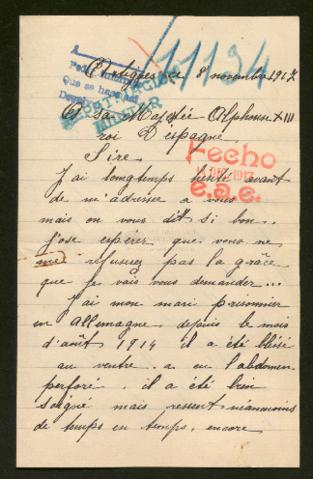 11134
Artigues ce 8 novembre 1917
A sa Majesté Alphonse XIII
roi D'espagne
Sire
Hecho
1917
e.a.e.
J'ai longtemps hésité avant
de m'adresser a vous
mais on vous dit si bon..
j'ose espérer que vous ne
me refuserez pas la grâce
que je vais vous demander...
J'ai mon mari prisonnier
en allemagne depuis le mois
d'août 1914 il a été blessé
au ventre . a eu l'abdomen
perforé . il a été bien
soigné mais ressent néanmoins
de temps en temps, encore